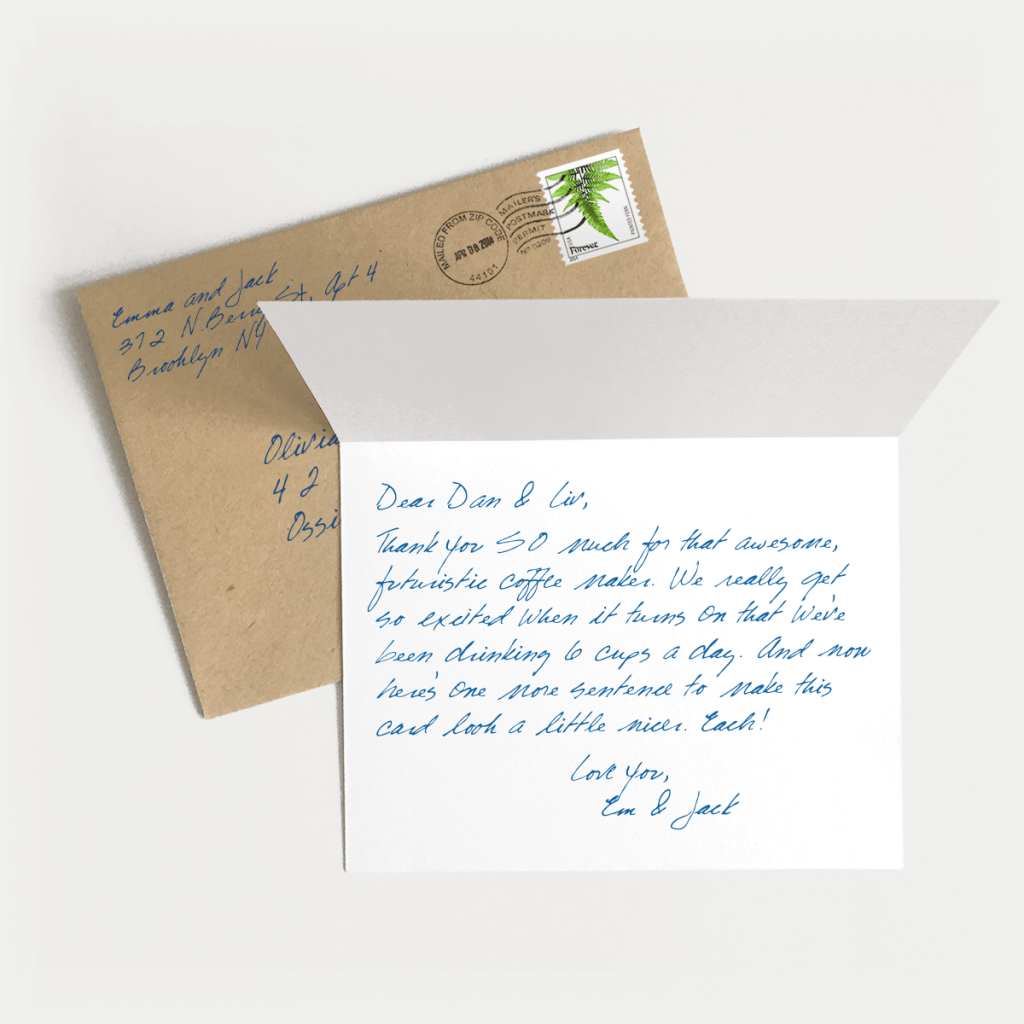 Emma and Jack
372 N. St, Apt 4
Brooklyn NY
Olivia
4 2
Ossi
MAILED FROM ZIP CODE
APR 08
44101
MAILER'S
POSTMARK
PERMIT
Forever
USA
Dear Dan & Liv,
Thank you SO much for that awesome,
futuristic coffee maker. We really get
so excited when it turns on that we've
been drinking 6 cups a day. And now
here's one more sentence to make this
card look a little nicer. Each!
Love you,
Em & Jack